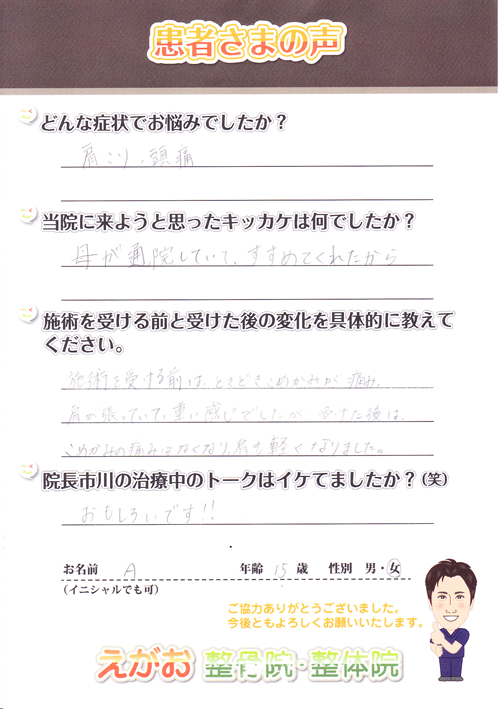 患者さまの声
どんな症状でお悩みでしたか？
肩こり・頭痛
当院に来ようと思ったキッカケは何でしたか？
母が通院していて、すすめてくれたから
施術を受ける前と受けた後の変化を具体的に教えて
ください。
施術を受ける前は、ときどきこめかみが痛み、
肩が張っていて、重い感じでしたが、受けた後は、
こめかみの痛みはなくなり、肩も軽くなりました。
院長市川の治療中のトークはイケてましたか？(笑)
おもしろいです!!
お名前 A 年齢 15 歳 性別 男・女
(イニシャルでも可)
ご協力ありがとうございました。
今後ともよろしくお願いいたします。
えがお 整骨院・整体院